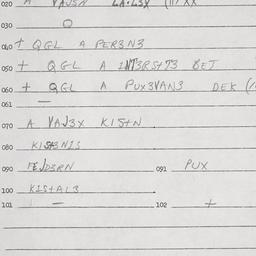 020 A VAJ3N LA·L3X (11/XX
030 O
040 + QGL A PER3N3
050 + QGL A INT3RS+T3 BET
060 + QGL A PUX3VAN3 DEK (1
061 —
070 A VAJ3X KIS+N
080 KIS+3NIS
090 FEJD3RN 091 PUX
100 KIS+AL3
101 — 102 +